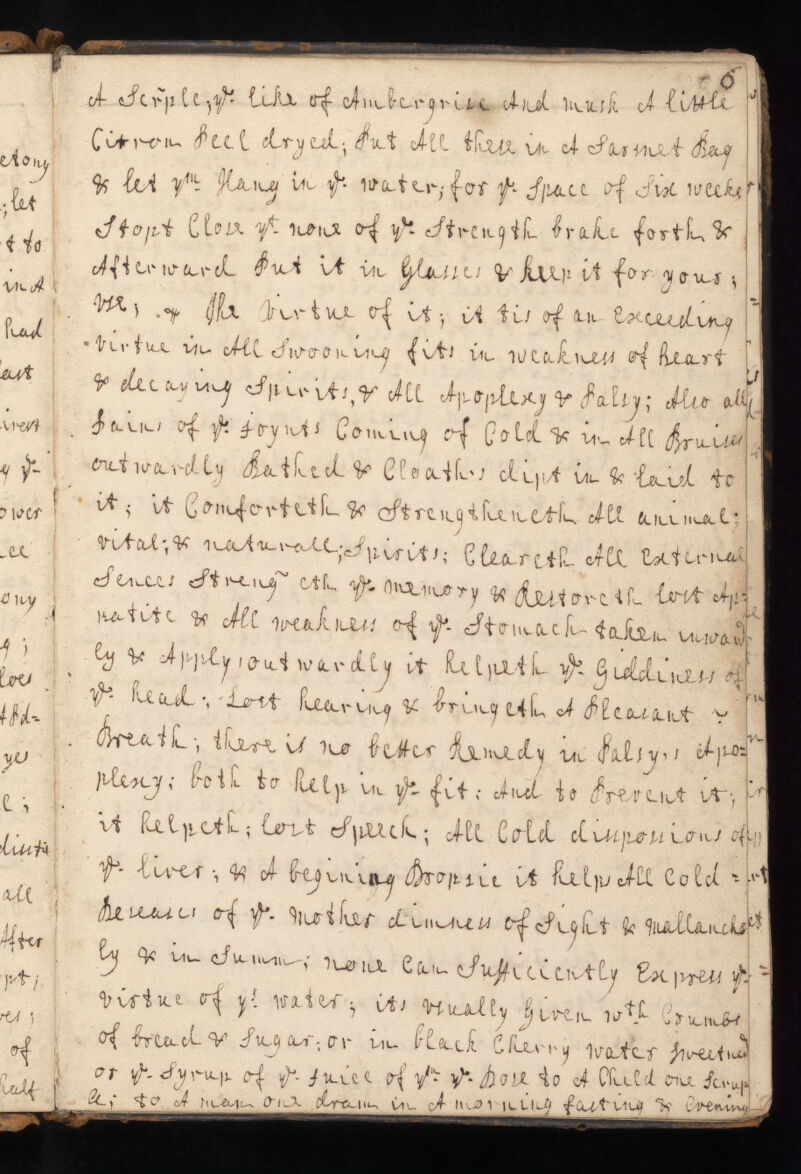 6
A Scrple; ye. like of Ambergrise And musk A little
Citron Peel dryed; Put All these in A Sarsnet Bag
& let ym Hang in ye. water; for ye. Space of Six weeke
Stopt Close yt none of ye. Strength brake forth &
Afterward Put it in Glasses & keep it for your;
vse; The Virtue of it; it tis of an Exceeding
Virtue in All Swooning fits in weakness of heart
& decaying Spirits, & All Apoplexy & Palsy; Also all
Pains of ye. Joynts Coming of Cold & in All Bruises
outwardly Bathed & Cloaths dipt in & laid to
it; it Comforteth & Strengtheneth All animal;
vital; & naturall; Spirits; Cleareth All External
Sences Streng~eth ye. memory & Restoreth lost Ap=
patite & All weakness of ye. Stomach taken inward
ly & Apply,outwardly it helpeth ye. Giddiness of
ye. head; Lost hearing & bringeth A Pleasant ~
Breath; there is no better Remedy in Palsy,s Apo=
plexy; both to help in ye. fit; And to Prevent it;
it helpeth; lost Speech; All Cold dispossions of
ye. liver; & A begining Dropsie it helps All Cold =
Deseases of ye. mother dimness of Sight & mallancho
ly & in Summ; none Can Sufficiently Express ye. =
virtue of ys water; its vsually Given wth Crumbs
of bread & Sugar; or in black Cherry water sweetned
or ye. Syrup of ye. Juice of ym ye. Dose to A Child one Scrup
le; to A man one dram in A morning fasting & Evening
etony
; let
t to
in A
had
ye
all
After
of
half